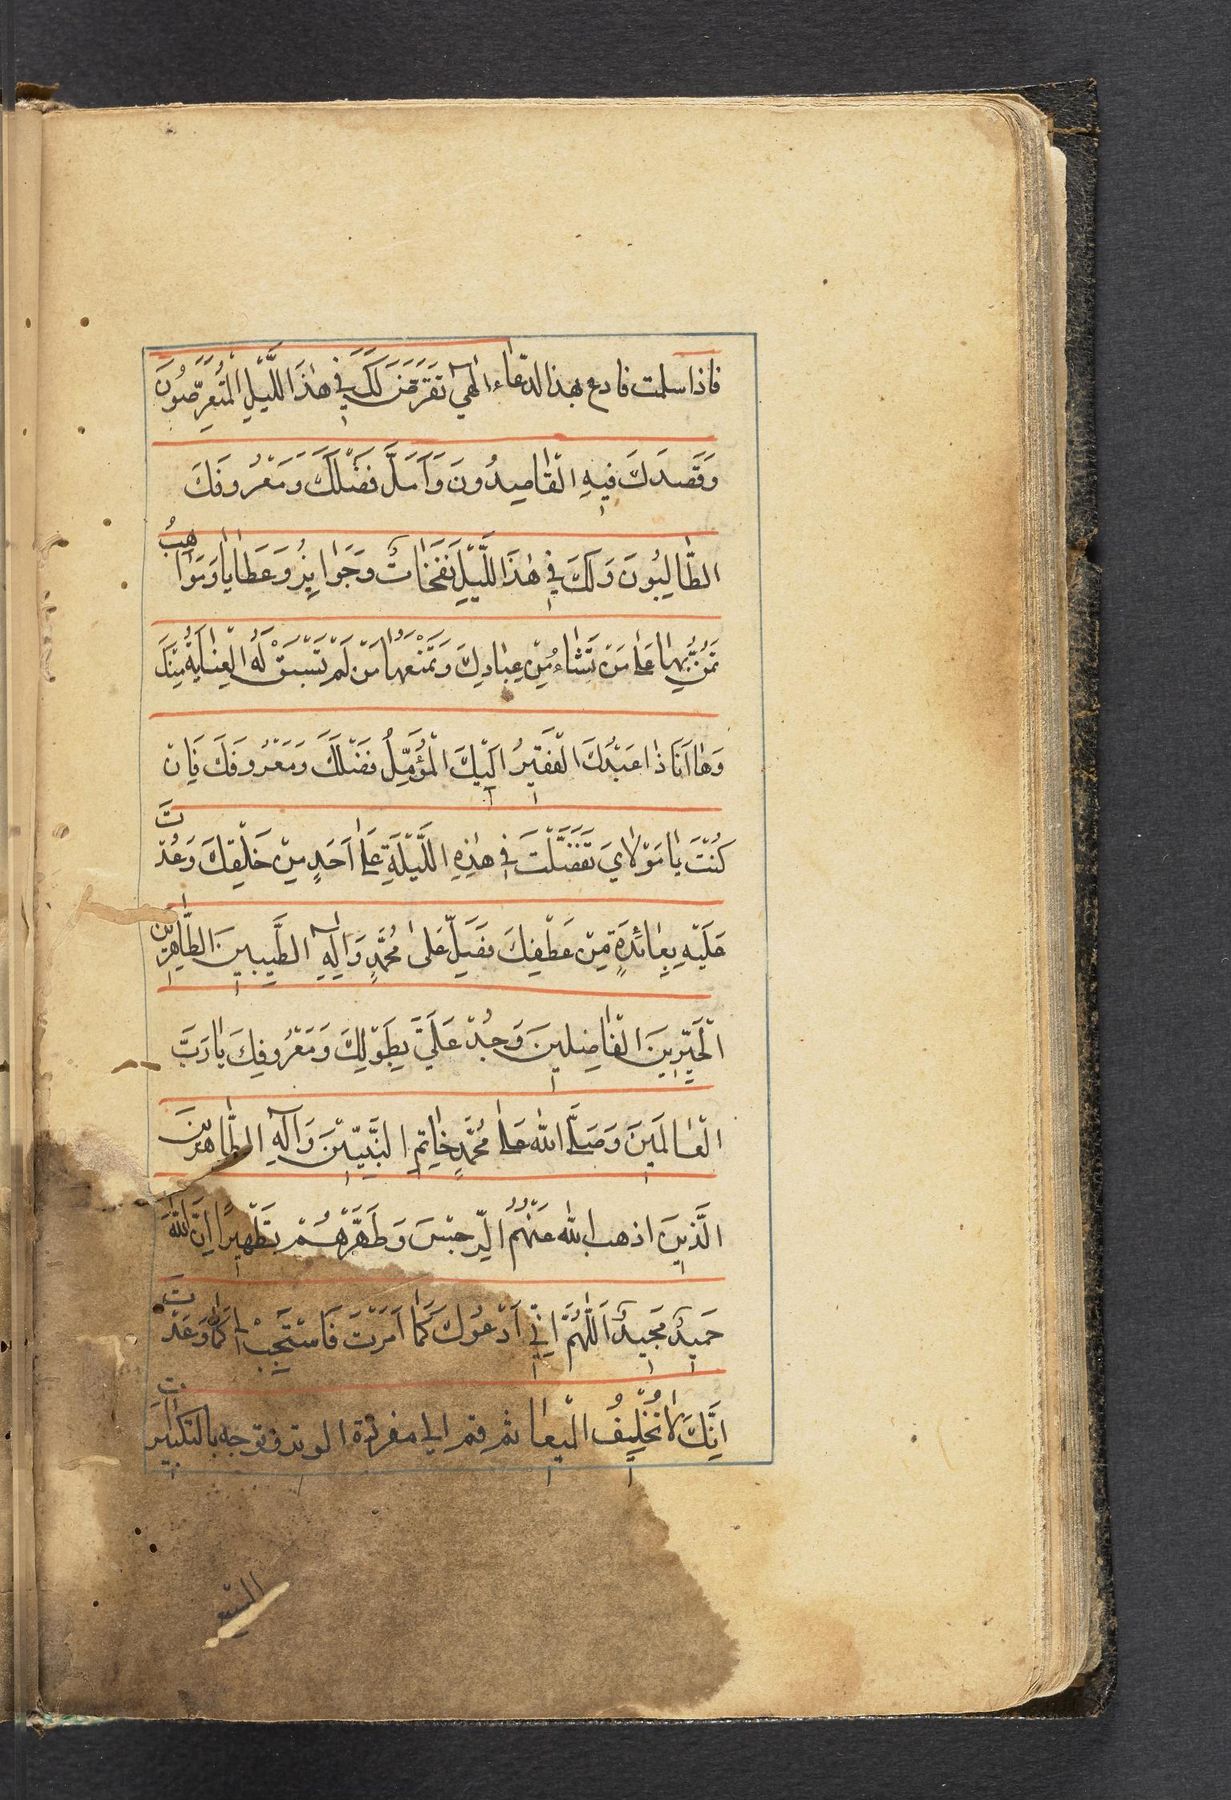 فاذا سلمت فادع بهذا الدعاء اِلٰهي تَعَرَّضَ لَكَ في هٰذَا اللَّيْلِ الْمُتَعَرِّضُونَ
وَقَصَدَكَ فيهِ الْقٰاصِدُونَ وَاَمَّلَ فَضْلَكَ وَمَعْرُوفَكَ
الطّٰالِبُونَ وَلَكَ في هٰذَا اللَّيْلِ نَفَحٰاتٌ وَجَوٰايِزُ وَعَطٰايٰا وَمَوٰاهِبُ
تَمُنُّ بِهٰا عَلىٰ مَنْ تَشٰاءُ مِنْ عِبٰادِكَ وَتَمْنَعُهٰا مَنْ لَمْ تَسْبَقْ لَهُ الْعِنٰايَةُ مِنْكَ
وَهٰا اَنَا ذٰا عَبْدُكَ الْفَقيرُ اِلَيْكَ الْمُؤَمِّلُ فَضْلَكَ وَمَعْرُوفَكَ فَاِنْ
كُنْتَ يٰا مَوْلٰايَ تَفَضَّلْتَ في هٰذِهِ اللَّيْلَةِ عَلىٰ اَحَدٍ مِنْ خَلْقِكَ وَعُدْتَ
عَلَيْهِ بِعٰائِدَةٍ مِنْ عَطْفِكَ فَصَلِّ عَلىٰ مُحَمَّدٍ وَاٰلِهِ الطَّيِّبينَ الطّٰاهِرينَ
الْخَيِّرينَ الْفٰاضِلينَ وَجُدْ عَلَيَّ بِطَوْلِكَ وَمَعْرُوفِكَ يٰا رَبَّ
الْعٰالَمينَ وَصَلَّى اللهُ عَلىٰ مُحَمَّدٍ خٰاتِمِ النَّبِيّينَ وَاٰلِهِ الطّٰاهِرينَ
الَّذينَ اذهب الله عَنْهُمُ الرِّجْسَ وَطَهَّرَهُمْ تَطْهيرًا اِنَّ اللهَ
حَميدٌ مَجيدٌ اَللّٰهُمَّ اِنّي اَدْعُوكَ كَمٰا اَمَرْتَ فَاسْتَجِبْ لي كَمٰا وَعَدْتَ
اِنَّكَ لٰا تُخْلِفُ الْميعٰاد ثم قم الى مفردة الوتر فتوجه بالتكبيرات
السبع